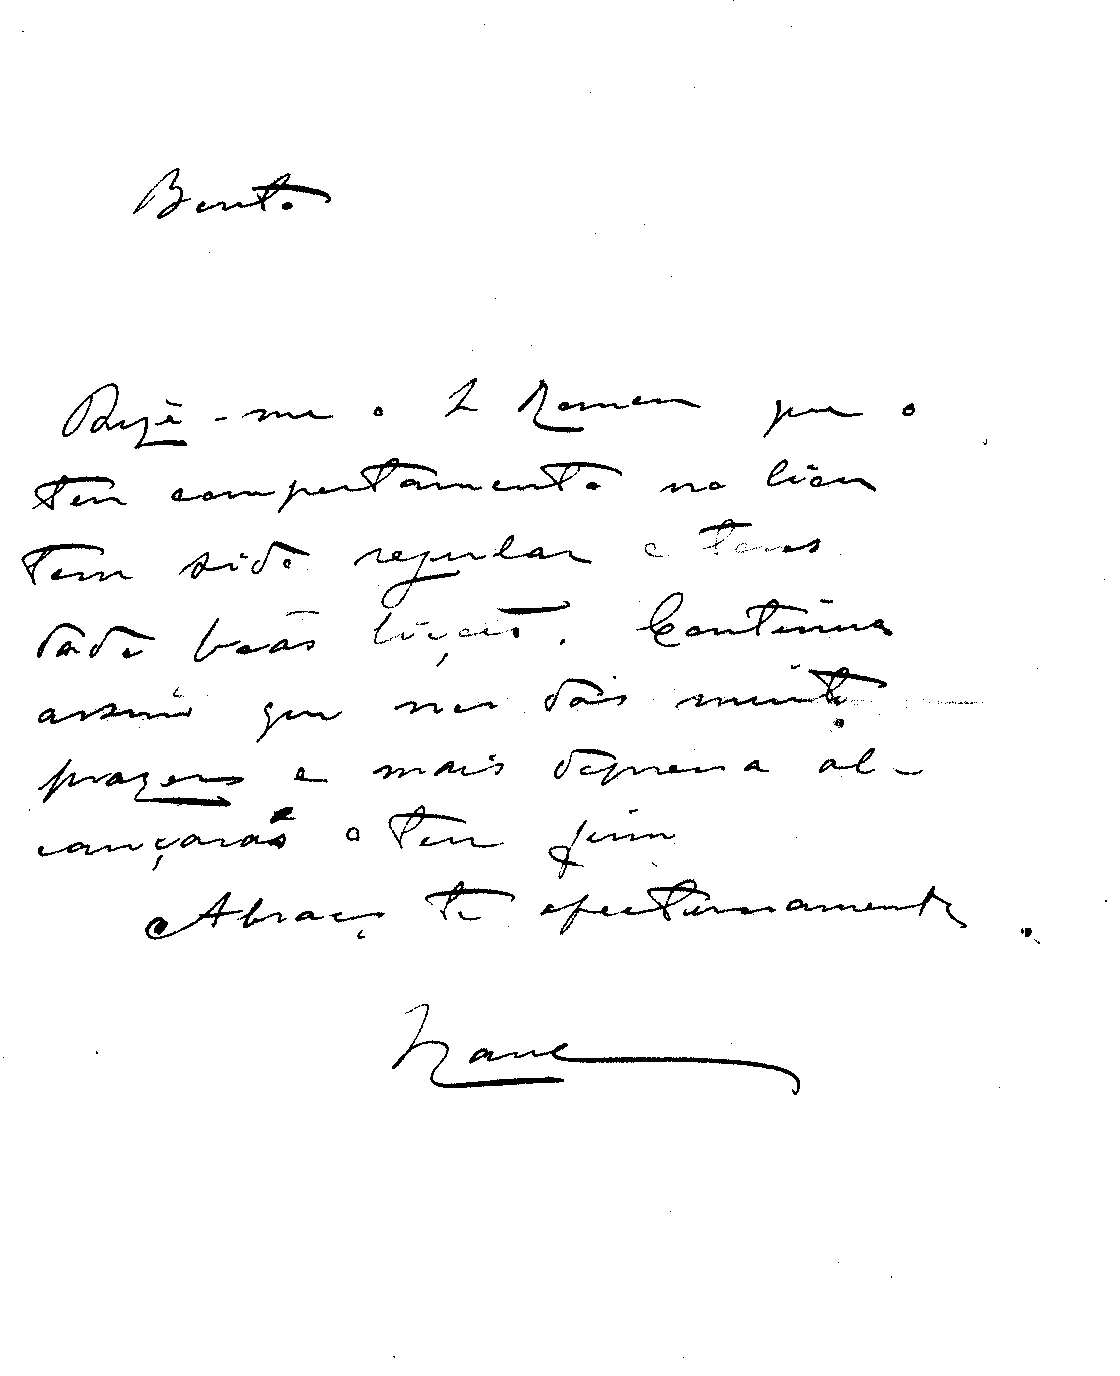 Bento
-me o Ramon que o
teu comportamento no liceu
tem sido regular e tens
dado boas lições. Continua
assim que nos dás muito
prazer e mais depressa al-
cançarás o teu fim
Abraço te afectuosamente